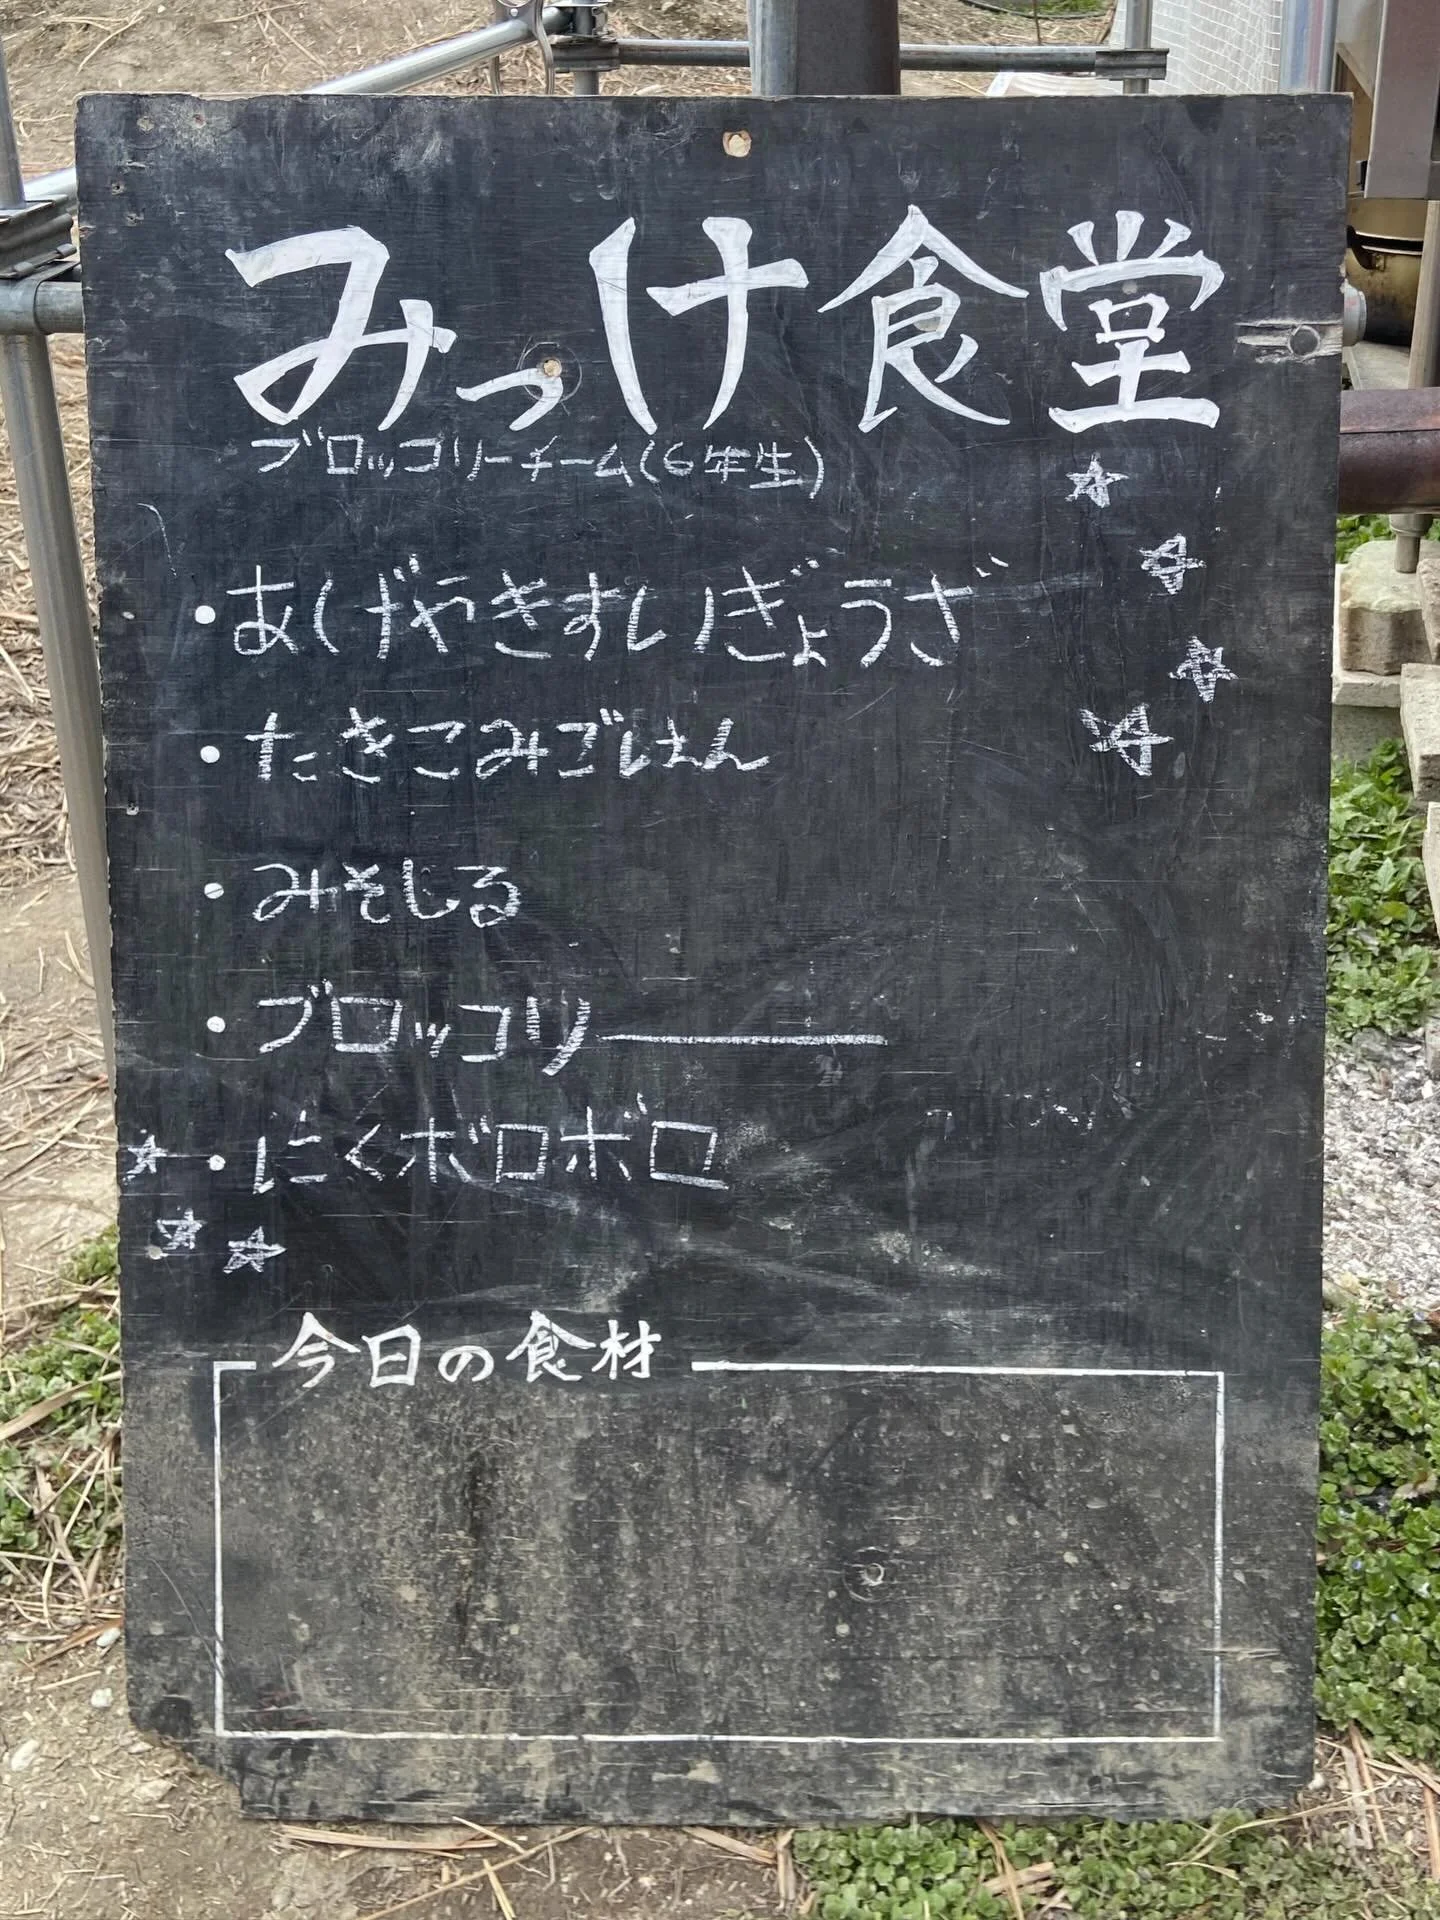 みっけ食堂
ブロッコリーチーム(6年生)
・あげやきすいぎょうざ
・たきこみごはん
・みそしる
・ブロッコリー
・にくボロボロ
今日の食材